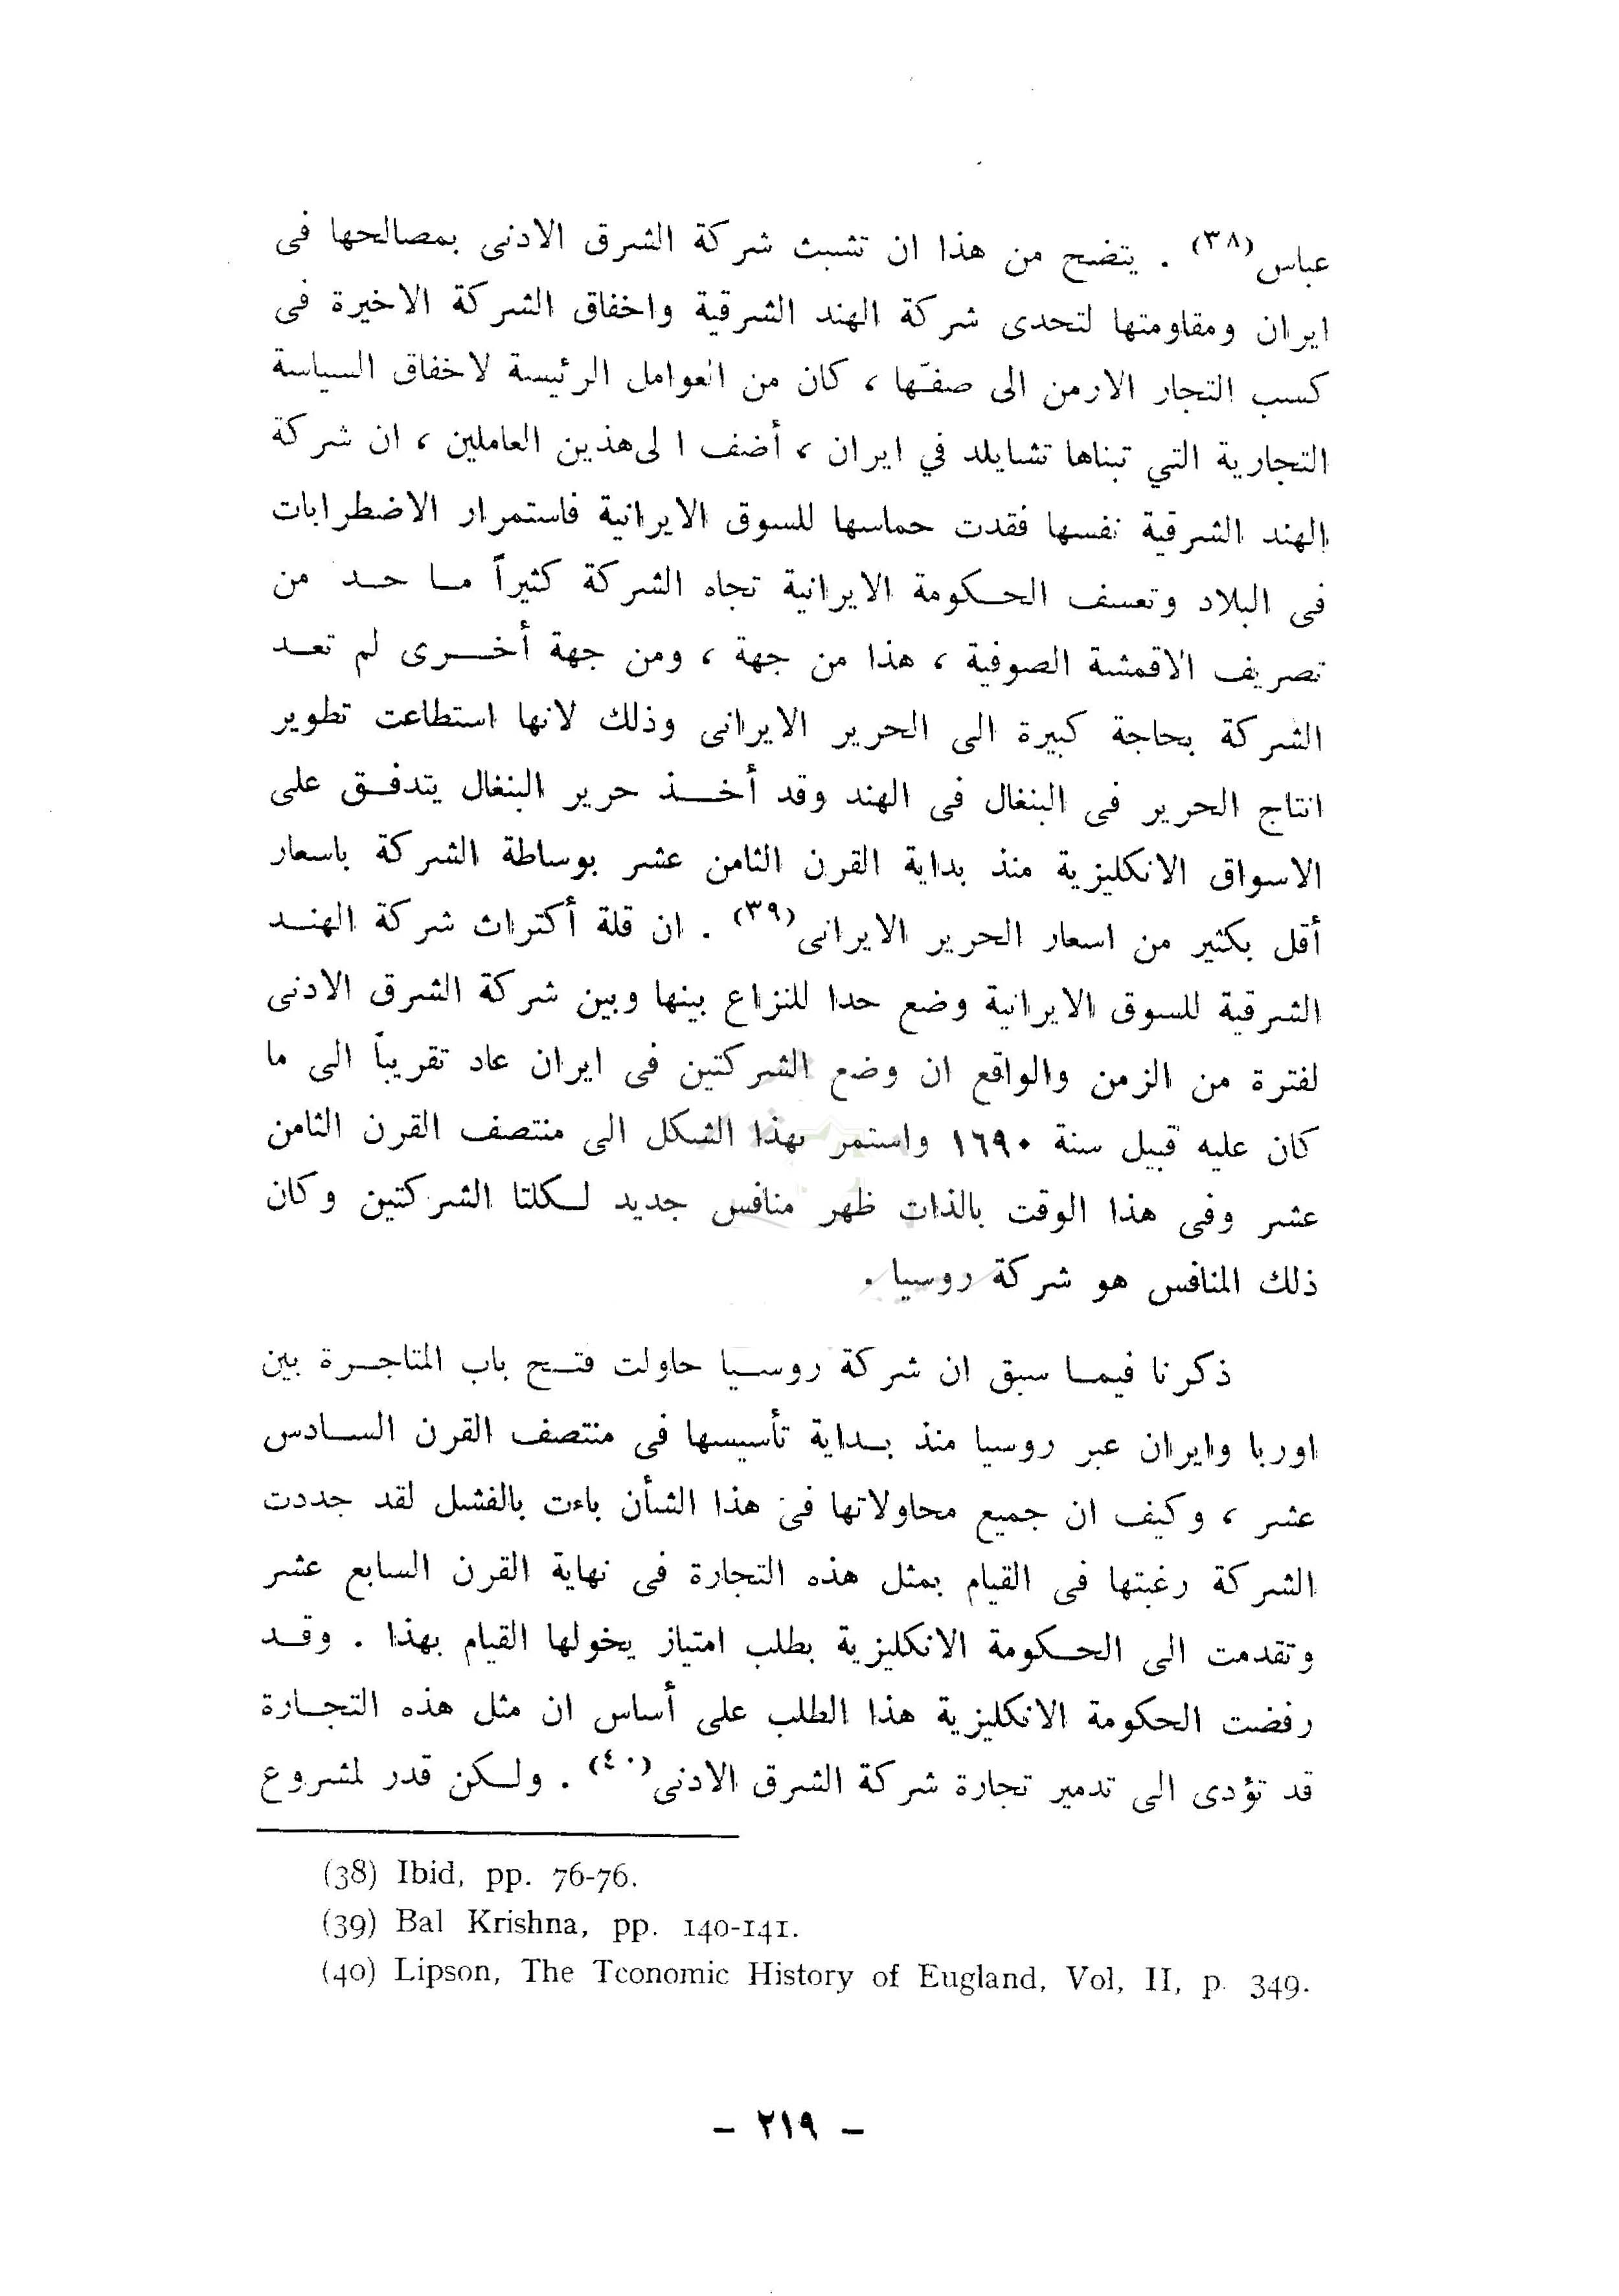 عباس(٣٨) . يتضح من هذا ان تشبث شركة الشرق الادنى بمصالحها فى
ايران ومقاومتها لتحدى شركة الهند الشرقية واخفاق الشركة الاخيرة فى
كسب التجار الارمن الى صفّها ، كان من العوامل الرئيسة لاخفاق السياسة
التجارية التي تبناها تشايلد في ايران ، أضف ا لى هذين العاملين ، ان شركة
الهند الشرقية نفسها فقدت حماسها للسوق الايرانية فاستمرار الاضطرابات
فى البلاد وتعسف الحكومة الايرانية تجاه الشركة كثيراً ما حد من
تصريف الاقمشة الصوفية ، هذا من جهة ، ومن جهة أخرى لم تعد
الشركة بحاجة كبيرة الى الحرير الايرانى وذلك لانها استطاعت تطوير
انتاج الحرير فى البنغال فى الهند وقد أخذ حرير البنغال يتدفق على
الاسواق الانكليزية منذ بداية القرن الثامن عشر بوساطة الشركة باسعار
أقل بكثير من اسعار الحرير الايرانى(٣٩) . ان قلة أكتراث شركة الهند
الشرقية للسوق الايرانية وضع حدا للنزاع بينها وبين شركة الشرق الادنى
لفترة من الزمن والواقع ان وضع الشركتين فى ايران عاد تقريباً الى ما
كان عليه قبيل سنة ١٦٩٠ واستمر بهذا الشكل الى منتصف القرن الثامن
عشر وفى هذا الوقت بالذات ظهر منافس جديد لكلتا الشركتين وكان
ذلك المنافس هو شركة روسيا .
ذكرنا فيما سبق ان شركة روسيا حاولت فتح باب المتاجرة بين
اوربا وايران عبر روسيا منذ بداية تأسيسها فى منتصف القرن السادس
عشر ، وكيف ان جميع محاولاتها فى هذا الشأن باءت بالفشل لقد جددت
الشركة رغبتها فى القيام بمثل هذه التجارة فى نهاية القرن السابع عشر
وتقدمت الى الحكومة الانكليزية بطلب امتياز يخولها القيام بهذا . وقد
رفضت الحكومة الانكليزية هذا الطلب على أساس ان مثل هذه التجارة
قد تؤدى الى تدمير تجارة شركة الشرق الادنى(٤٠) . ولكن قدر لمشروع
(38) Ibid, pp. 76-76.
(39) Bal Krishna, pp. 140-141.
(40) Lipson, The Tconomic History of Eugland, Vol, II, p. 349.
– ٢١٩ –